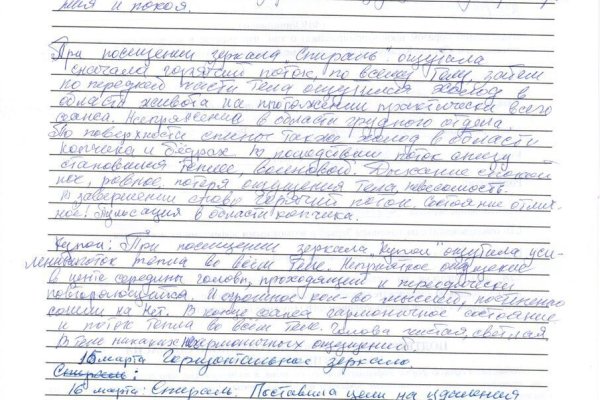 ния и покоя.
При посещении зеркала „Спираль" ощутила
сначала горячий поток, по всему телу, затем
по передней части тела ощущался холод в
области живота на протяжении практически всего
сеанса. Напряжение в области грудного отдела.
По поверхности спины также холод в области
копчика и бедрах. В последствии поток снизу
становился теплее, волновой. Дыхание спокой
ное, ровное, потеря ощущения тела, невесомость.
В завершении снова горячий поток. Состояние отлич-
ное. Пульсация в области копчика.
Купол: При посещении зеркала „Купол" ощутила уси-
ление поток тепла во всем теле. Неприятное ощущение
в центре середины головы, проходящий и переодически
повторяющийся. И огромное кол-во мыслей, постепенно
сошли на нет. В конце сеанса гармоничное состояние
и поток тепла во всем теле. Голова чистая, светлая,
В теле никаких негармоничных ощущений.
15 марта Горизонтальное зеркало.
Спираль:
16 марта: Спираль. Поставила цели на